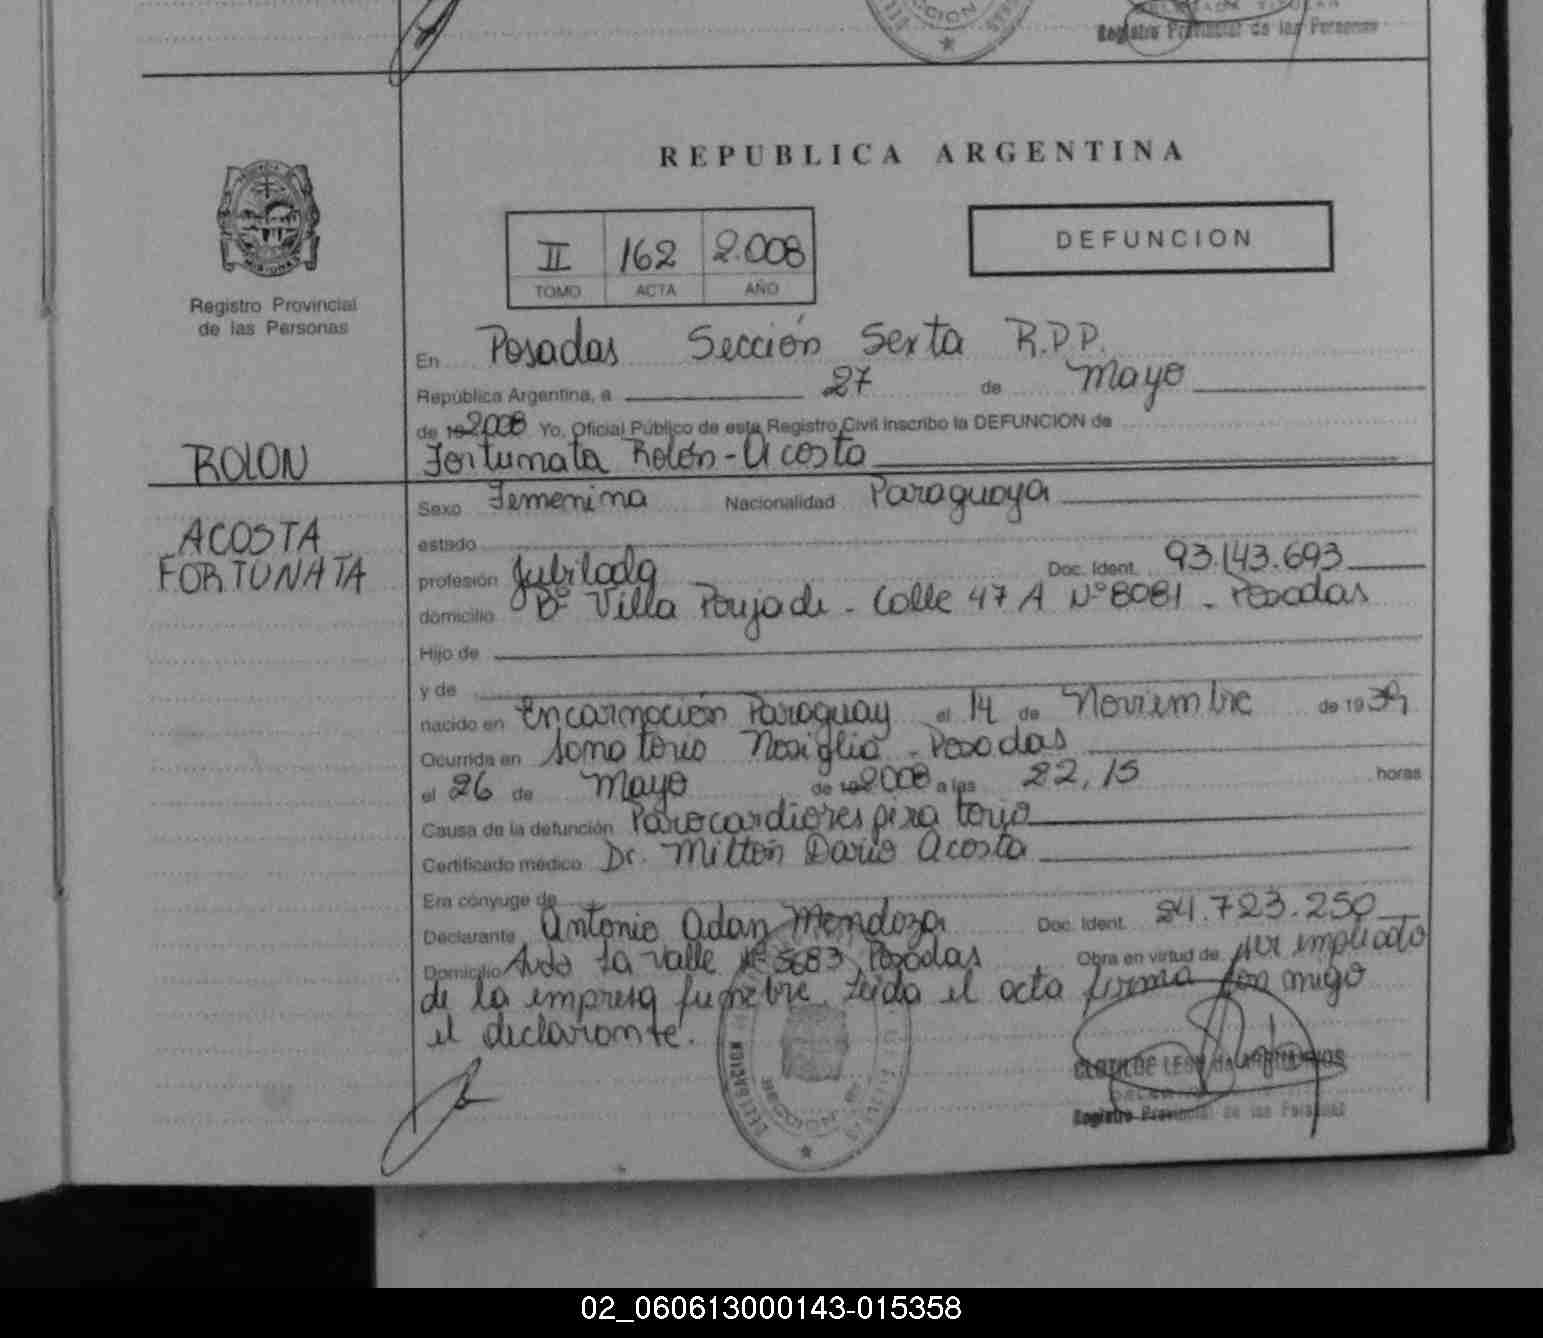 Registro Provincial de las Personas
REPUBLICA ARGENTINA
MISIONES
Registro Provincial
de las Personas
II 162 2.008
TOMO ACTA AÑO
DEFUNCION
En Posadas Sección Sexta R.P.P.
República Argentina, a 27 de Mayo
de 19 2008 Yo, Oficial Público de este Registro Civil inscribo la DEFUNCION de
ROLON
Fortunata Rolón - Acosta
ACOSTA
FORTUNATA
Sexo Femenina Nacionalidad Paraguaya
estado
profesión Jubilada Doc. Ident. 93.143.693
domicilio Bº Villa Poujade - Calle 47 A Nº 8081 - Posadas
Hijo de
y de
nacido en Encarnación Paraguay el 14 de Noviembre de 1939
Ocurrida en Sanatorio Nosiglia - Posadas
el 26 de Mayo de 19 2008 a las 22,15 horas
Causa de la defunción Parocardiorespiratorio
Certificado médico Dr. Milton Dario Acosta
Era cónyuge de
Declarante Antonio Adan Mendoza Doc. Ident. 24.723.250
Domicilio Avda La valle Nº 3683 Posadas Obra en virtud de ser impliado
de la impresa funebre. Leida el acta firma con migo
el declarante.
DELEGACION
SECCION
CLOTILDE LEON
Registro Provincial de las Personas
02_060613000143-015358